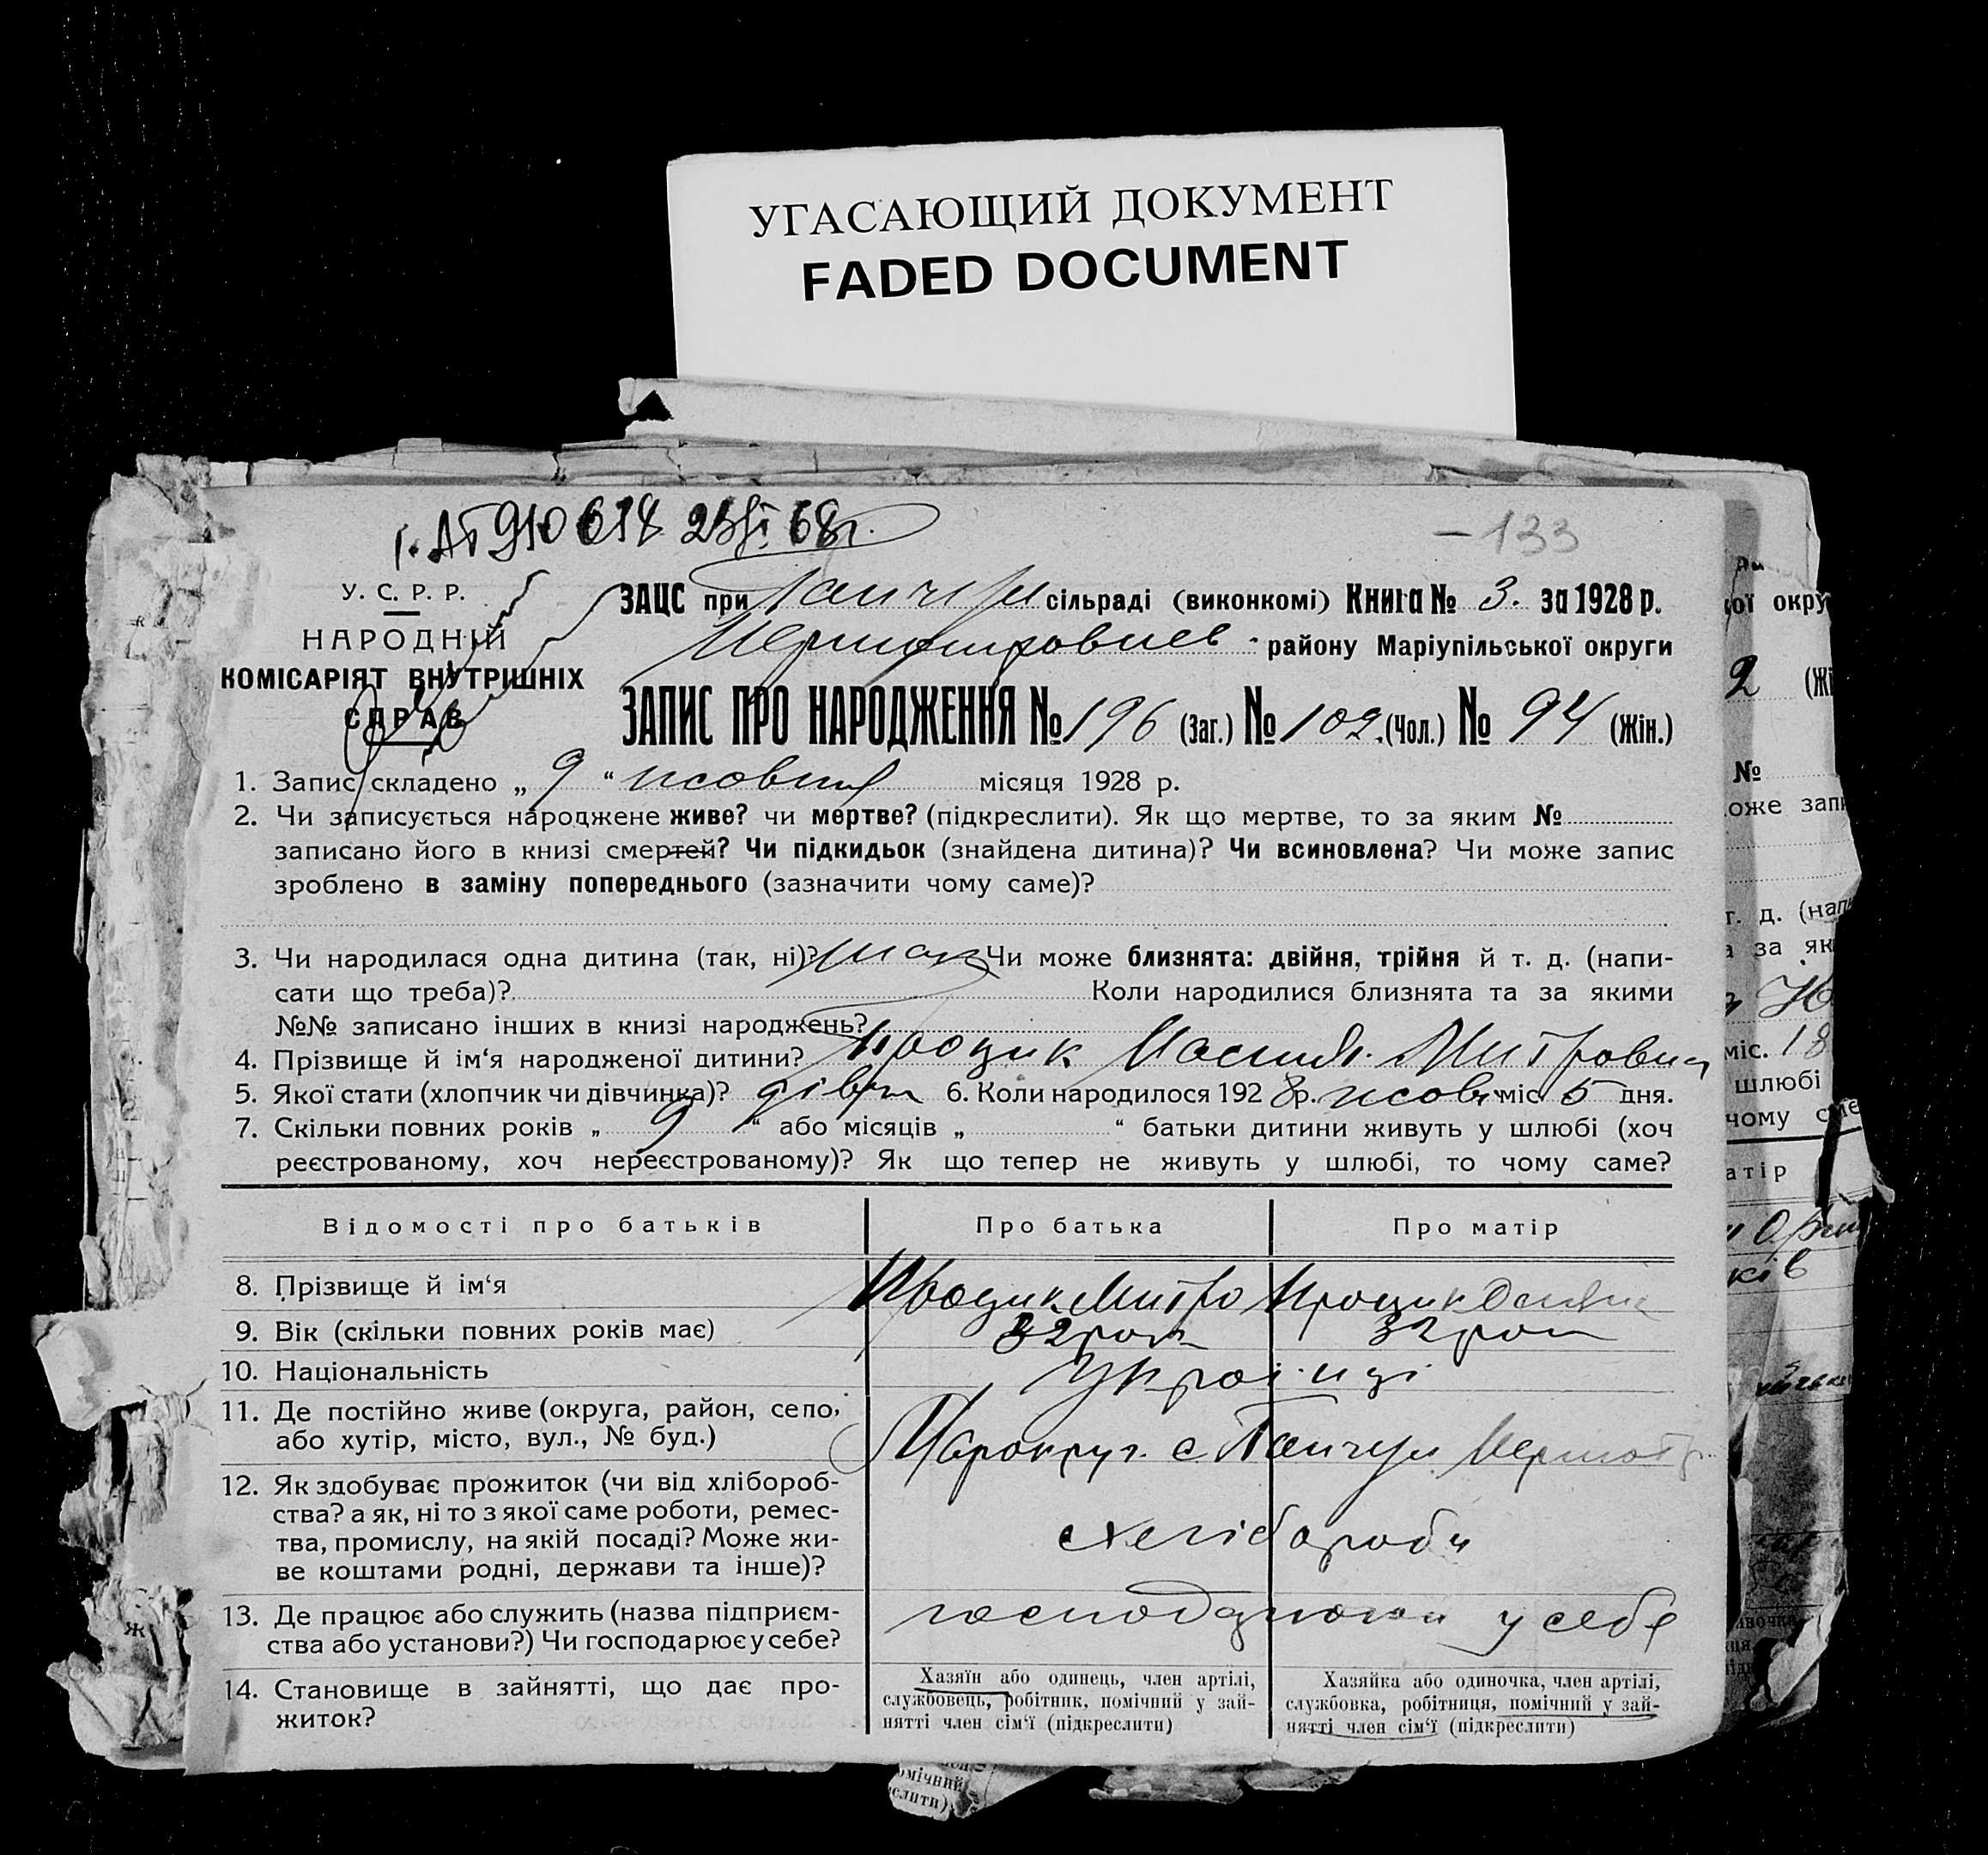 УГАСАЮЩИЙ ДОКУМЕНТ
FADED DOCUMENT
910 68г.
– 133
У. С. Р. Р.
НАРОДНІЙ
КОМІСАРІЯТ ВНУТРІШНІХ
СПРАВ
ЗАЦС при сільраді (виконкомі) Книга № 3. за 1928 р.
району Маріупільської округи
ЗАПИС ПРО НАРОДЖЕННЯ № 196 (Заг.) № 102 (Чол.) № 94 (Жін.)
1. Запис складено „ 9 “ жовтня місяця 1928 р.
2. Чи записується народжене живе? чи мертве? (підкреслити). Як що мертве, то за яким №
записано його в книзі смертей? Чи підкидьок (знайдена дитина)? Чи всиновлена? Чи може запис
зроблено в заміну попереднього (зазначити чому саме)?
3. Чи народилася одна дитина (так, ні)? так Чи може близнята: двійня, трійня й т. д. (напи-
сати що треба)? Коли народилися близнята та за якими
№№ записано інших в книзі народжень?
4. Прізвище й ім‘я народженої дитини? Процик Митровна
5. Якої стати (хлопчик чи дівчинка)? дівч 6. Коли народилося 1928 р. жовт міс. 5 дня.
7. Скільки повних років „ 9 “ або місяців „ “ батьки дитини живуть у шлюбі (хоч
реєстрованому, хоч нереєстрованому)? Як що тепер не живуть у шлюбі, то чому саме?
Відомості про батьків Про батька Про матір
8. Прізвище й ім‘я Процик Митро Процик
9. Вік (скільки повних років має) 32 рот 32 рот
10. Національність Українці
11. Де постійно живе (округа, район, село,
або хутір, місто, вул., № буд.) Марокруг. с
12. Як здобуває прожиток (чи від хлібороб-
ства? а як, ні то з якої саме роботи, ремес-
тва, промислу, на якій посаді? Може жи-
ве коштами родні, держави та інше)? хлібороби
13. Де працює або служить (назва підприєм-
ства або установи?) Чи господарює у себе? у себе
14. Становище в зайнятті, що дає про-
житок?
Хазяїн або одинець, член артілі,
службовець, робітник, помічний у зай-
нятті член сім‘ї (підкреслити)
Хазяйка або одиночка, член артілі,
службовка, робітниця, помічний у зай-
нятті член сім‘ї (підкреслити)